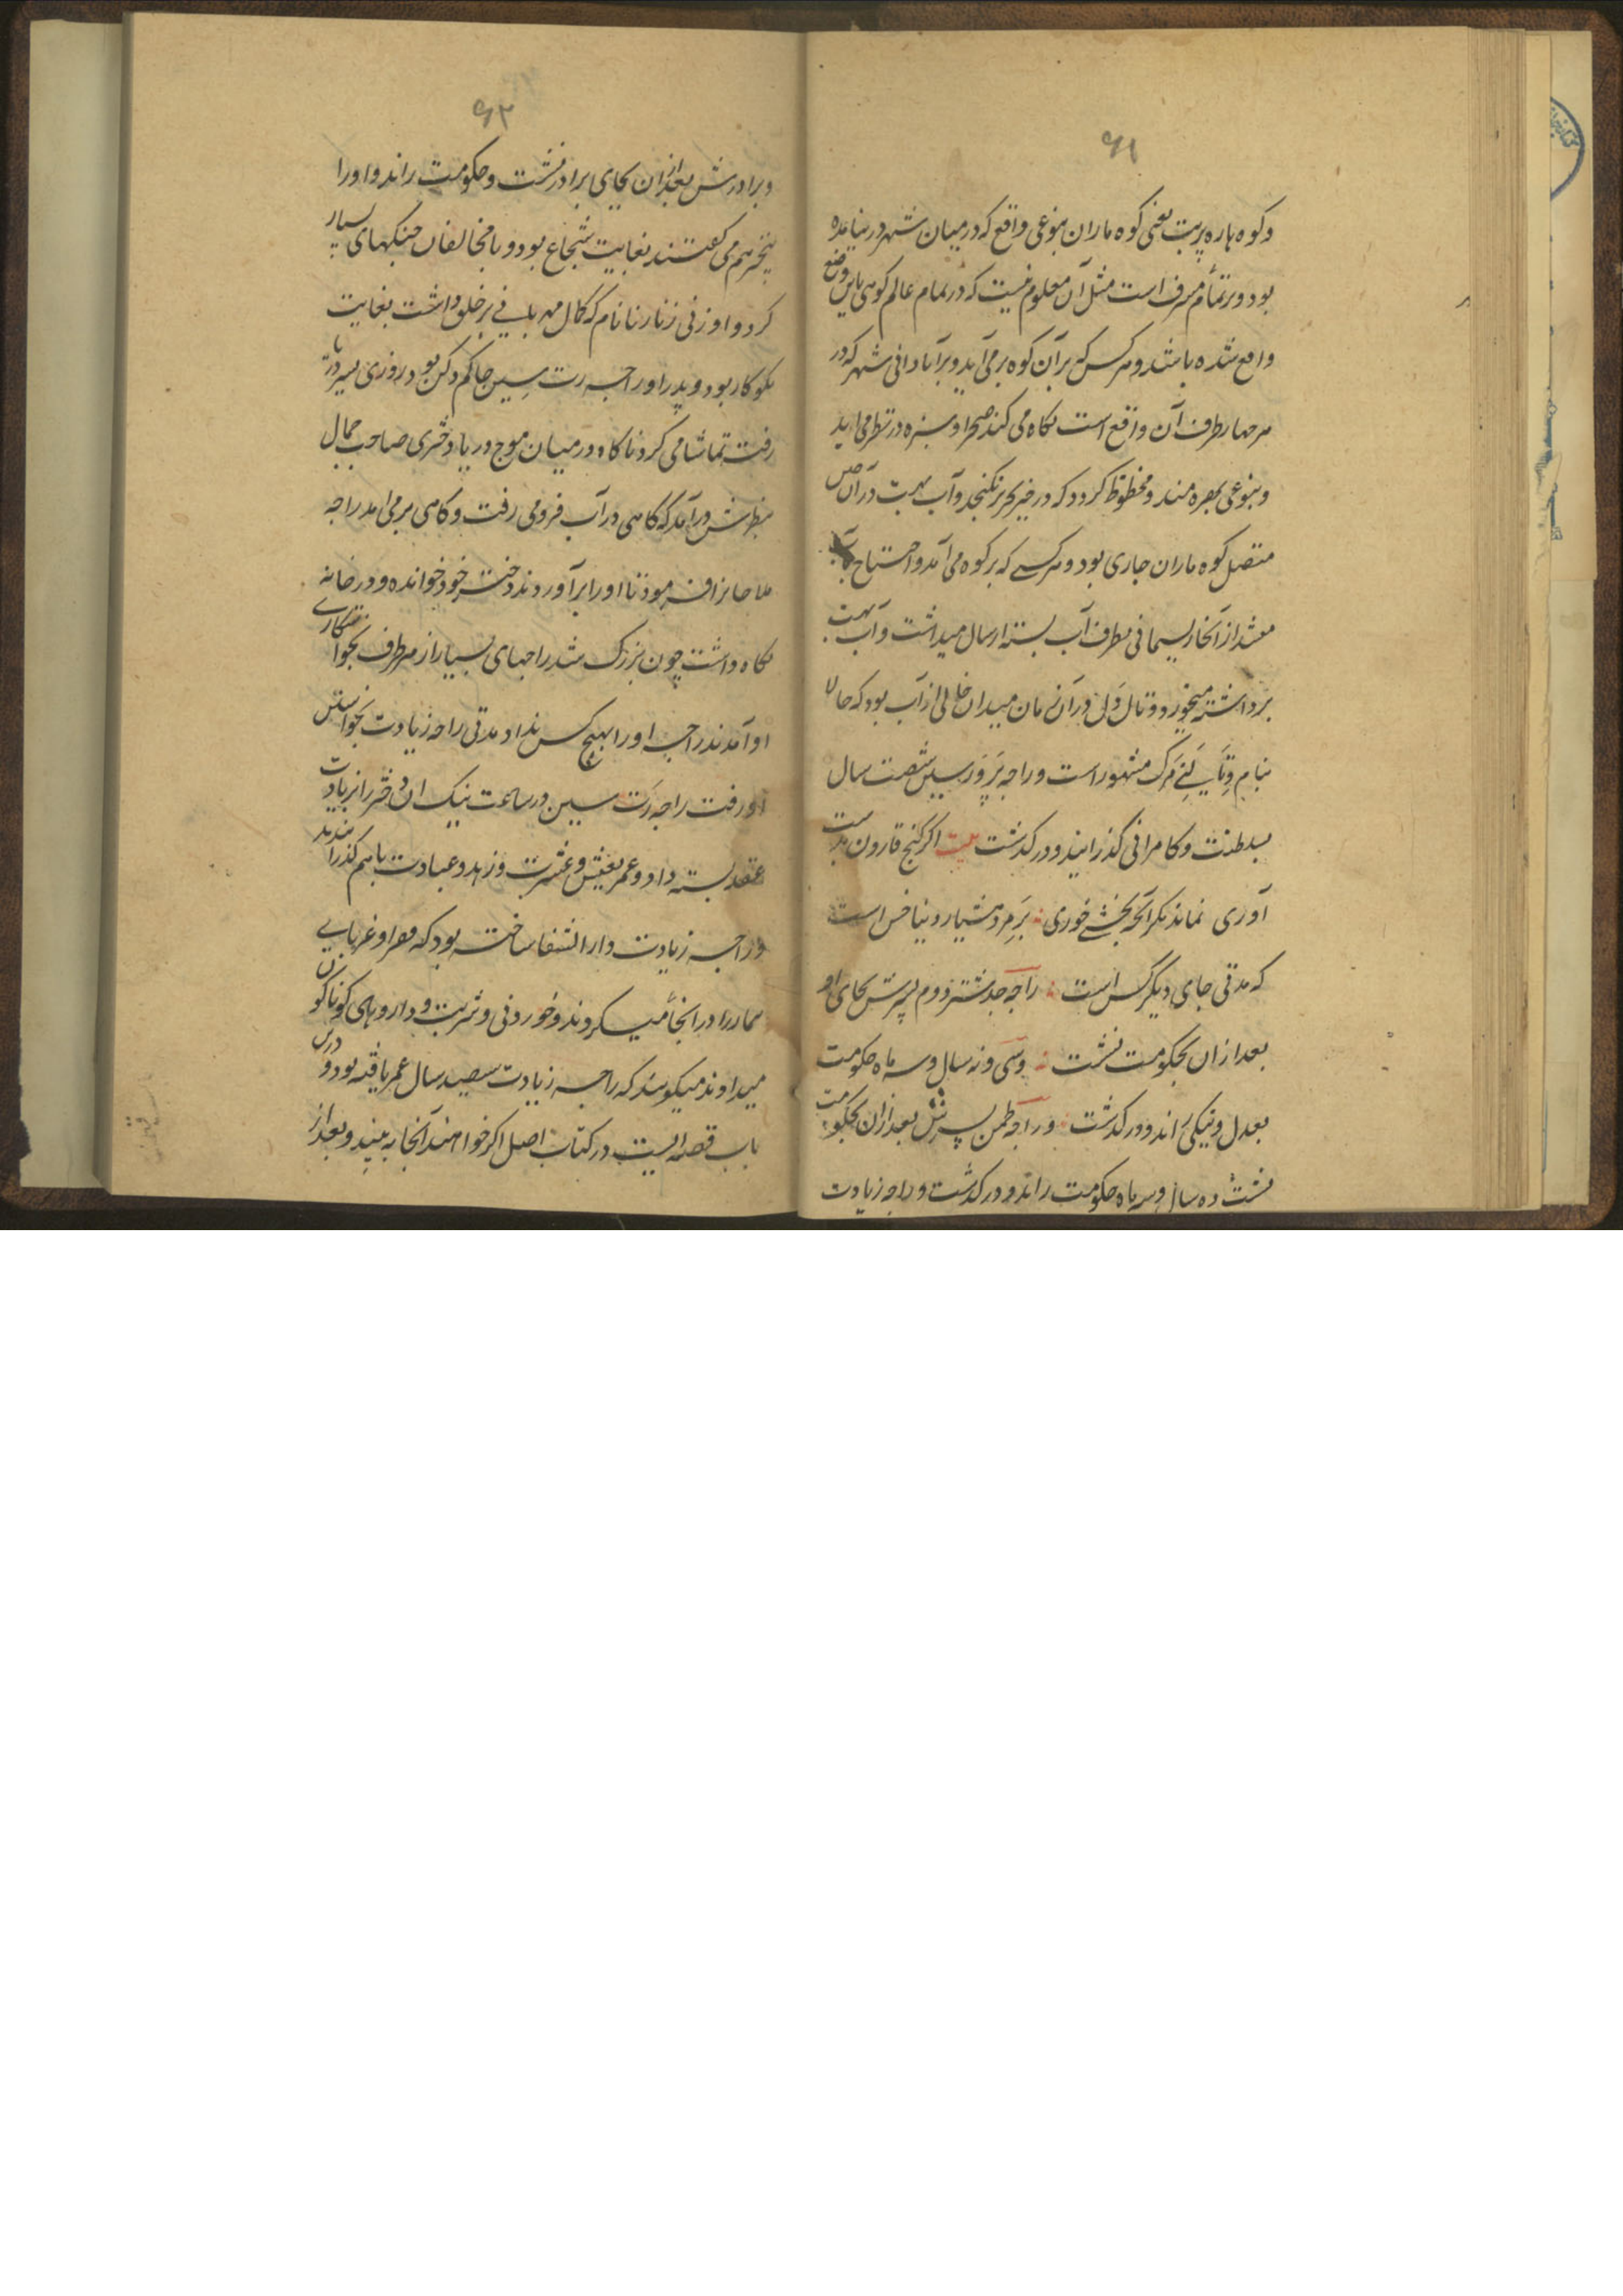 ۶۱
وکوه هاره پربت یعنی کوه ماران بنوعی واقع که در میان شهر در بنیامده
بود و بر تمام مشرف است مثل آن معلوم نیست که در تمام عالم کوهی باین وضع
واقع شده باشد و هر کس که بر آن کوه برمی آید و بر آبادانی شهر که در
هر چهار طرف آن واقع است نکاه می کند صحرا و سبزه در نظر می آید
وبنوعی بهره مند و محظوظ کردد که در خیر تحریر نکنجد و آب بهت در آن حین
متصل کوه ماران جاری بود و هر کسے که بر کوه می آمد و احتیاج بآب
میشد از آنجا ریسمانی بطرف آب بسته ارسال میداشت و آب بهت
برداشته میخورد و تال ولی در آن زمان میدان خالی از آب بود که حالا
بنام مشهور است و راجه پرورسین شصت سال
بسلطنت و کامرانی کذرانید و درکذشت بیت اکر کنج قارون بدست
آوری نماند مکر آنچه بخشے خوری بر مرد هشیار دنیا خس است
که مدتی جای دیکر کس است راجه جدشتر دوم پسرش بجای او
بعد ازان بحکومت نشست و سی و نه سال و سه ماه حکومت
بعدل و نیکی راند و درکذشت و راجه لخمن پسرش بعد ازان بحکومت
نشست ده سال و سه ماه حکومت راند و درکذشت و راجه زیادت
۶۲
و برادرش بعد ازان بجای برادر نشست و حکومت راند و او را
هم می کفتند بغایت شجاع بود و با مخالفان جنکهای بسیار
کرد و او زنی زنارنا نام که کمال مهربانی بر خلق داشت بغایت
نکوکار بود و پدر او راجه رت سین حاکم دکن بود روزی بسیر دریا
رفت تماشا می کرد ناکاه در میان موج دریا دختری صاحب جمال
بنظرش درآمد که کاهی در آب فرو می رفت و کاهی برمی آمد راجه
ملاحانرا فرمود تا او را برآوردند دختر خود خوانده و در خانه
نکاه داشت چون بزرک شد راجهای بسیار از هر طرف بخواستکاری
او آمدند راجه او را بهیچ کس نداد مدتی راجه زیادت بخواستن
او رفت راجه رت سین در ساعت نیک آن دختر را بزیادت
عقد بسته داد و عمر بعیش و عشرت و زهد و عبادت باهم کذرانیدند
و راجه زیادت دارالشفا ساخته بود که فقرا و غربای
بیمار را در آنجا میکردند و خوردنی و شربت و داروهای کوناکون
میدادند میکویند که راجه زیادت سیصد سال عمر یافته بود و درین
باب قصه ایست در کتاب اصل اکر خواهند آنجا به بینند و بعد از